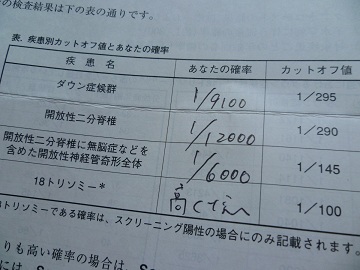 の検査結果は下の表の通りです。
表. 疾患別カットオフ値とあなたの確率
疾患名 あなたの確率 カットオフ値
ダウン症候群 1/9100 1/295
開放性二分脊椎 1/12000 1/290
開放性二分脊椎に無脳症などを
含めた開放性神経管奇形全体 1/6000 1/145
18トリソミー* 高くない 1/100
トリソミーである確率は、スクリーニング陽性の場合にのみ記載されます。
りも高い確率の場合は、
には、